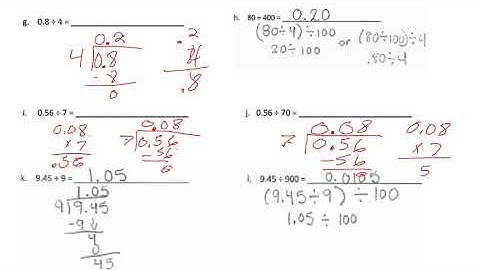 g. 0.8 ÷ 4 =
0.2
4 0.8
-8
0
.2
.8
h. 80 ÷ 400 = 0.20
(80÷4) ÷100
20 ÷ 100
or
(80÷100)÷4
.80÷4
i. 0.56 ÷ 7 =
0.08
x 7
.56
0.08
7 0.56
-56
0
j. 0.56 ÷ 70 =
0.08
7 0.56
-56
0.08
x 7
5
k. 9.45 ÷ 9 = 1.05
1.05
9 9.45
-9
4
0
45
l. 9.45 ÷ 900 = 0.0105
(9.45÷9) ÷ 100
1.05 ÷ 100